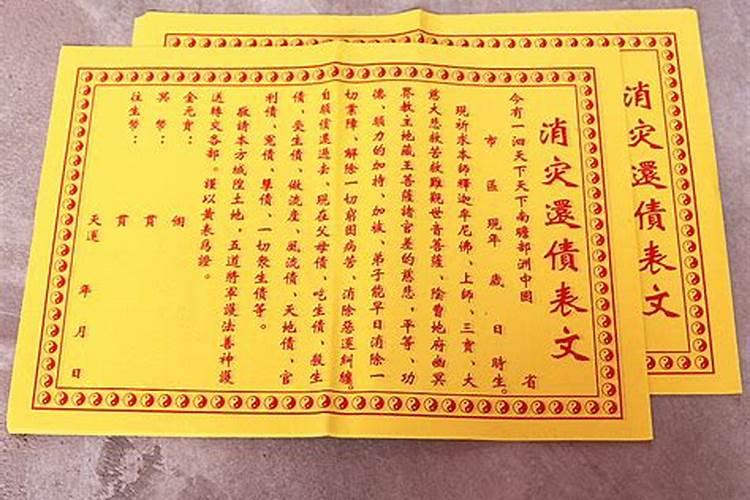 消灾還債表文
今有一泗天下天下南瞻部洲中国 省
市 區 現年 歲 日 時生。
現祈求本師釋迦牟尼佛、上師、三寶、大
慈大悲救苦救難觀世音菩薩、陰曹地府幽冥
界教主地藏王菩薩諸官差的慈悲，平等、功
德、願力的加持、加被、弟子能早日消除一
切業障、解除一切窮困病苦、消除惡運糾纏。
自願償還過去、現在父母債、吃生債、殺生
債、受生債、做流産、風流債、天地債、官
利債、冤債、孽債、一切衆生債等。
敬請本方城隍土地，五道將軍護法善神護
送轉交各部。謹以黄表爲證。
金元寶： 個
冥 幣： 貫
往生幣： 貫
天運 年 月 日
消灾還債表文